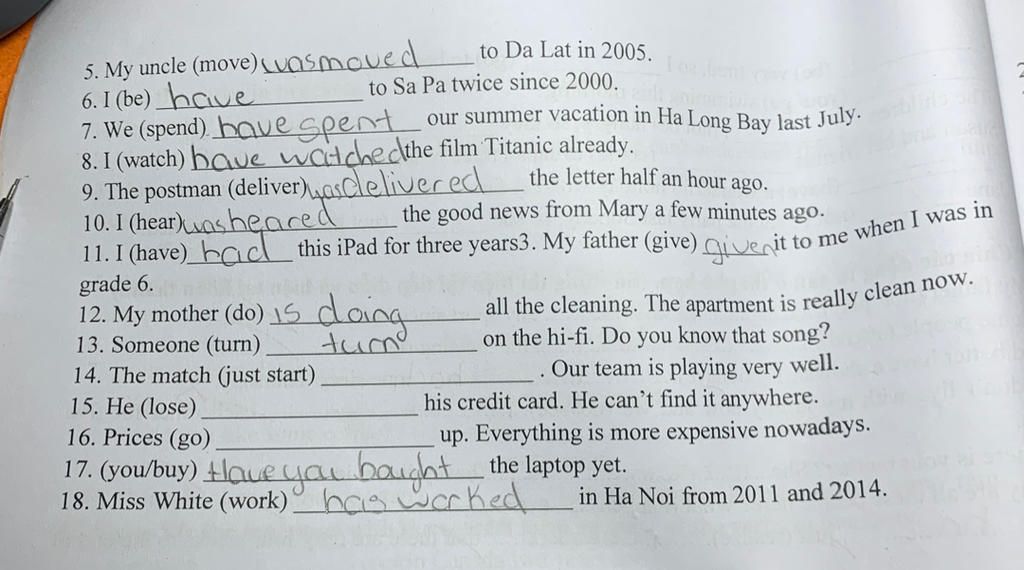 5. My uncle (move) wasmoved to Da Lat in 2005.
6. I (be) have to Sa Pa twice since 2000.
7. We (spend) have spent our summer vacation in Ha Long Bay last July.
8. I (watch) have watched the film Titanic already.
9. The postman (deliver) wasdelivered the letter half an hour ago.
10. I (hear) washeared the good news from Mary a few minutes ago.
11. I (have) had this iPad for three years3. My father (give) given it to me when I was in
grade 6.
12. My mother (do) is doing all the cleaning. The apartment is really clean now.
13. Someone (turn) turn on the hi-fi. Do you know that song?
14. The match (just start) ____________ . Our team is playing very well.
15. He (lose) ____________ his credit card. He can't find it anywhere.
16. Prices (go) ____________ up. Everything is more expensive nowadays.
17. (you/buy) Have you bought the laptop yet.
18. Miss White (work) has worked in Ha Noi from 2011 and 2014.